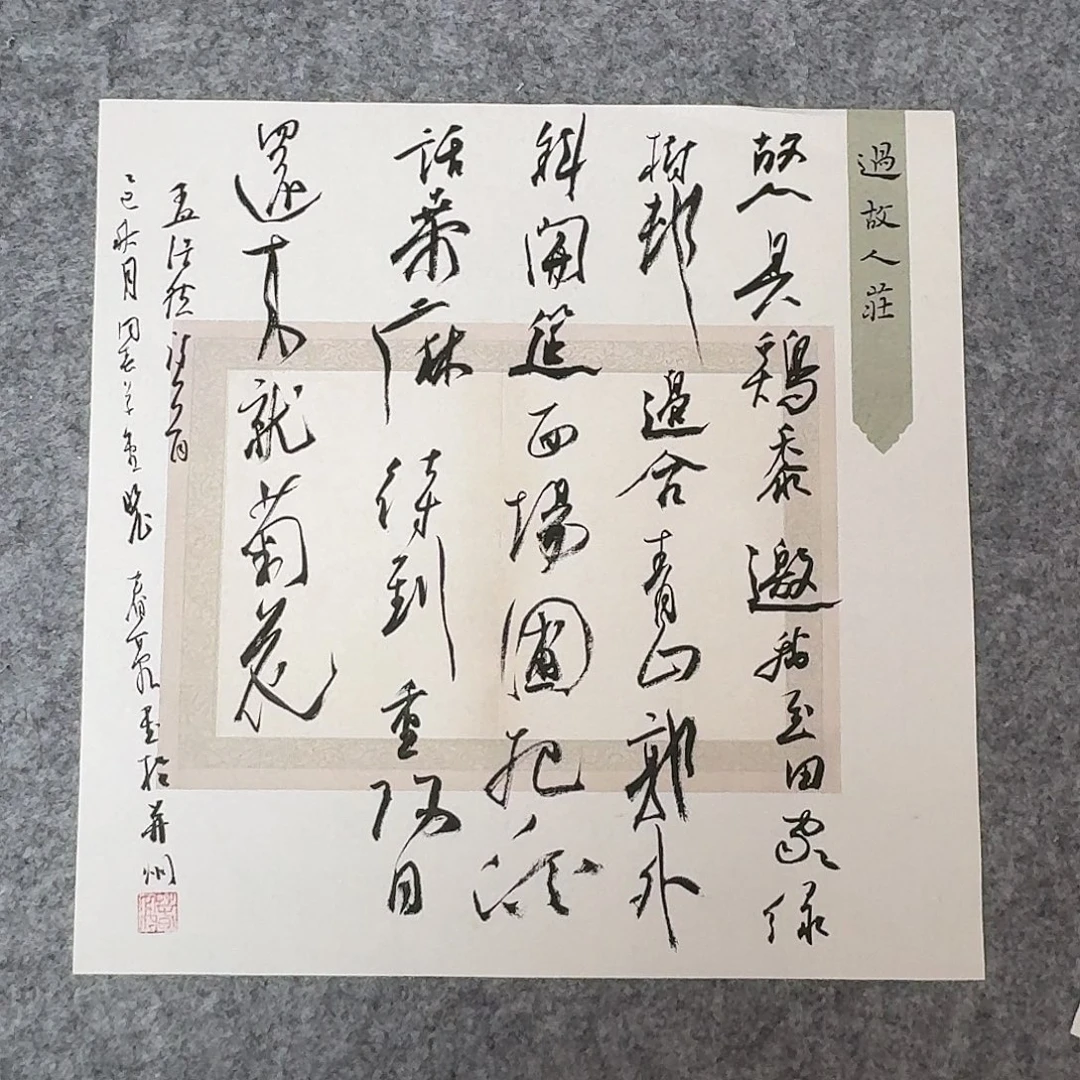 過故人莊
故人具鷄黍邀我至田家綠
樹邨邊合青山郭外
斜開筵面場圃把酒
話桑麻待到重陽日
還來就菊花
孟浩然詩一首
乙巳秋月 墨於并州